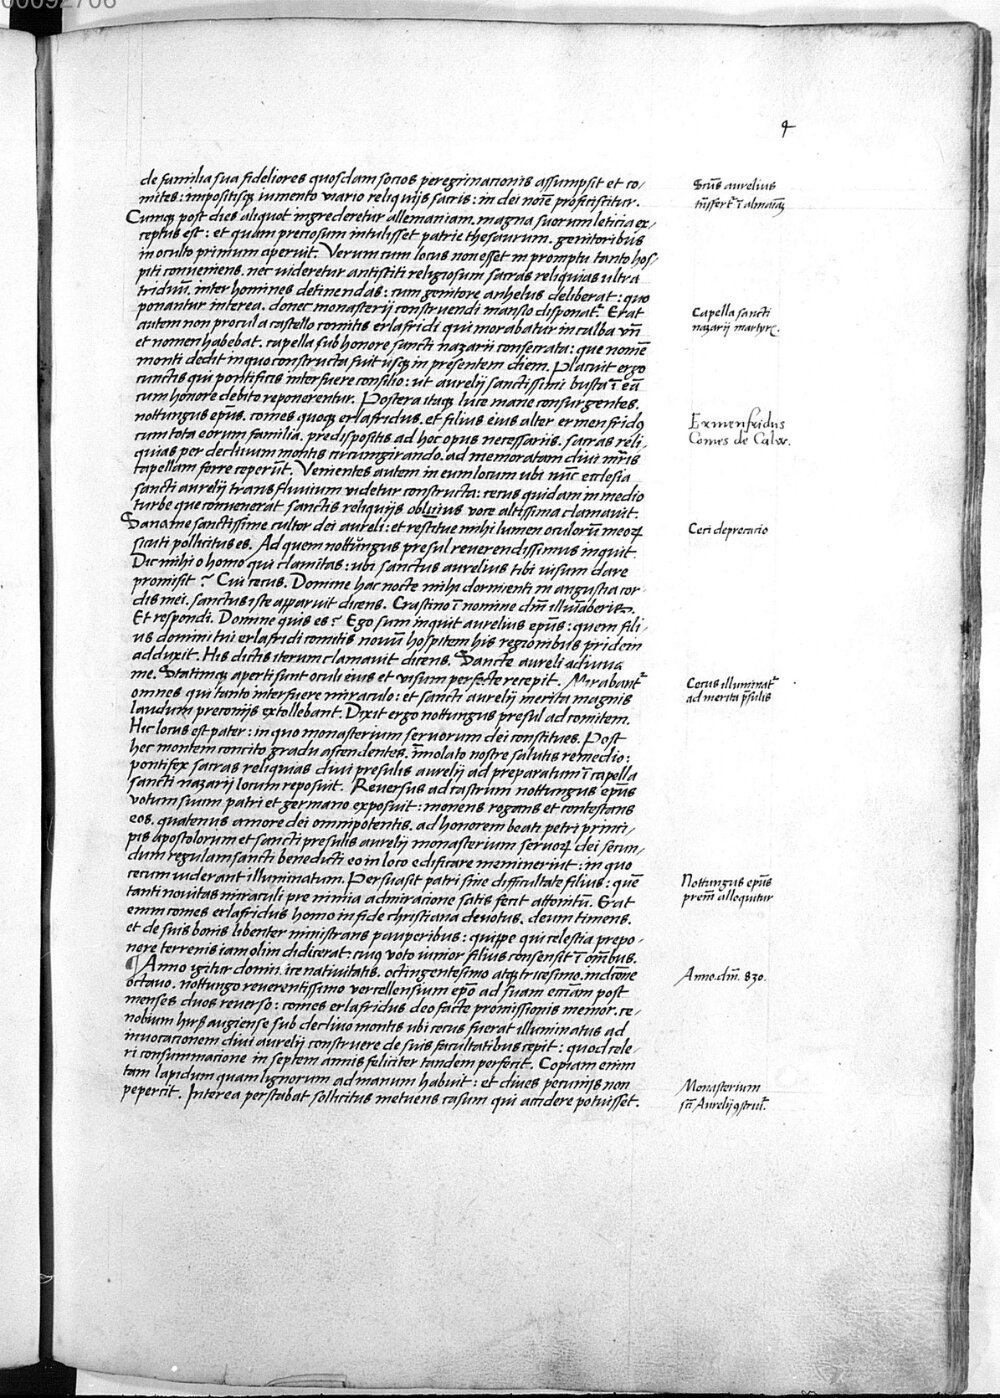 00092706
4
de familia sua fideliores quosdam socios peregrinacionis assumpsit et co/
mites: impositisqꝫ iumento viario reliquijs sacris: in dei noīe proficiscitur.
Cumqꝫ post dies aliquot ingrederetur allemaniam. magna suorum leticia ex/
ceptus est: et quam preciosum intulisset patrie thesaurum. genitoribus
in occulto primum aperuit. Verum cum locus non esset in promptu tanto hos/
piti conueniens. nec videretur antistiti religiosum sacras reliquias vltra
triduū. inter homines detinendas: cum genitore anhelus deliberat: quo
ponantur interea. donec monasterij construendi mansio disponat᷑. Erat
autem non procul a castello comitis erlafridi qui morabatur in calba vn̄
et nomen habebat. capella sub honore sancti nazarij consecrata: que nomē
monti dedit in quo constructa fuit vsqꝫ in presentem diem. Placuit ergo
cunctis qui pontificis interfuere consilio: vt aurelij sanctissimi busta ī eā
cum honore debito reponerentur. Postera itaqꝫ luce mane consurgentes.
nottungus ep̄us. comes quoqꝫ erlafridus. et filius eius alter ermenfridꝰ
cum tota eorum familia. predispositis ad hoc opus necessariis. sacras reli/
quias per decliuum montis circumgirando. ad memoratam diui mr̄is
capellam ferre ceperūt. Venientes autem in eum locum vbi nūc ecclesia
sancti aurelij trans fluuium videtur constructa: cecus quidam in medio
turbe que conuenerat sanctis reliquijs obuius voce altissima clamauit.
Sana me sanctissime cultor dei aureli: et restitue mihi lumen oculorū meoꝝ
sicuti pollicitus es. Ad quem nottūngus presul reuerendissimus inquit.
Dic mihi o homo qui clamitas: vbi sanctus aurelius tibi visum dare
promisit? Cui cecus. Domine hac nocte mihi dormienti in angustia cor/
dis mei. sanctus iste apparuit dicens. Crastino ī nomine dn̄i illūiaberis.
Et respondi. Domine quis es? Ego sum inquit aurelius ep̄us: quem fili/
us domini tui erlafridi comitis nouū hospitem his regionibus pridem
adduxit. His dictis iterum clamauit dicens. Sancte aureli adiuua
me. Statimqꝫ aperti sunt oculi eius et visum perfecte recepit. Mirabant᷑
omnes qui tanto interfuere miraculo: et sancti aurelij merita magnis
laudum preconijs extollebant. Dixit ergo nottungus presul ad comitem.
Hic locus est pater: in quo monasterium seruorum dei constitues. Post
hec montem concito gradu ascendentes. īmolato nostre salutis remedio:
pontifex sacras reliquias diui presulis aurelij ad preparatum ī capella
sancti nazarij locum reposuit. Reuersus ad castrum nottungus ep̄us
votum suum patri et germano exposuit: monens rogans et contestans
eos. quatenus amore dei omnipotentis. ad honorem beati petri princi/
pis apostolorum et sancti presulis aurelij monasterium seruoꝝ dei secun/
dum regulam sancti benedicti eo in loco edificare meminerint: in quo
cecum viderant illuminatum. Persuasit patri sine difficultate filius: quē
tanti nouitas miraculi pre nimia admiracione satis fecit attonitū. Erat
enim comes erlafridus homo in fide christiana deuotus. deum timens.
et de suis bonis libenter ministrans pauperibus: quippe qui celestia prepo/
nere terrenis iam olim didicerat. cuiꝰ voto iunior filius consensit ī om̄ibus.
¶ Anno igitur dominice natiuitatis. octingentesimo atqꝫ tricesimo. indictione
octauo. nottungo reuerentissimo vercellensium ep̄o ad suam ecc̄iam post
menses duos reuerso: comes erlafridus deo facte promissionis memor. ce/
nobium hirsaugiense sub decliuo montis vbi cecus fuerat illuminatus ad
inuocacionem diui aurelij construere de suis facultatibus cepit: quod cele/
ri consummacione in septem annis feliciter tandem perfecit. Copiam enim
tam lapidum quam lignorum ad manum habuit: et diues pecuniis non
pepercit. Interea perstabat sollicitus metuens casum qui accidere potuisset.
Sc̄us aurelius
trāsfert᷑ ī almaīaꝫ
Capella sancti
nazarij martyrꝭ.
Ermenfridus
Comes de Calw.
Ceci deprecatio
Cecus illuminat᷑
ad merita p̄sulis
Nottungus ep̄us
prem̄ alloquitur
Anno. dn̄i. 830.
Monasterium
sc̄i Aurelij ꝯstruit᷑.